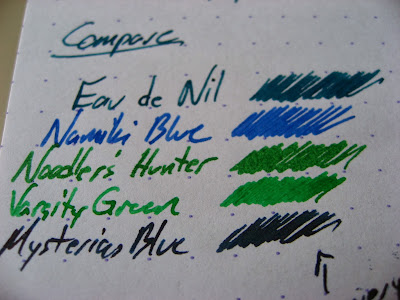 Compare
Eau de Nil
Namiki Blue
Noodler's Hunter
Varsity Green
Mysterias Blue